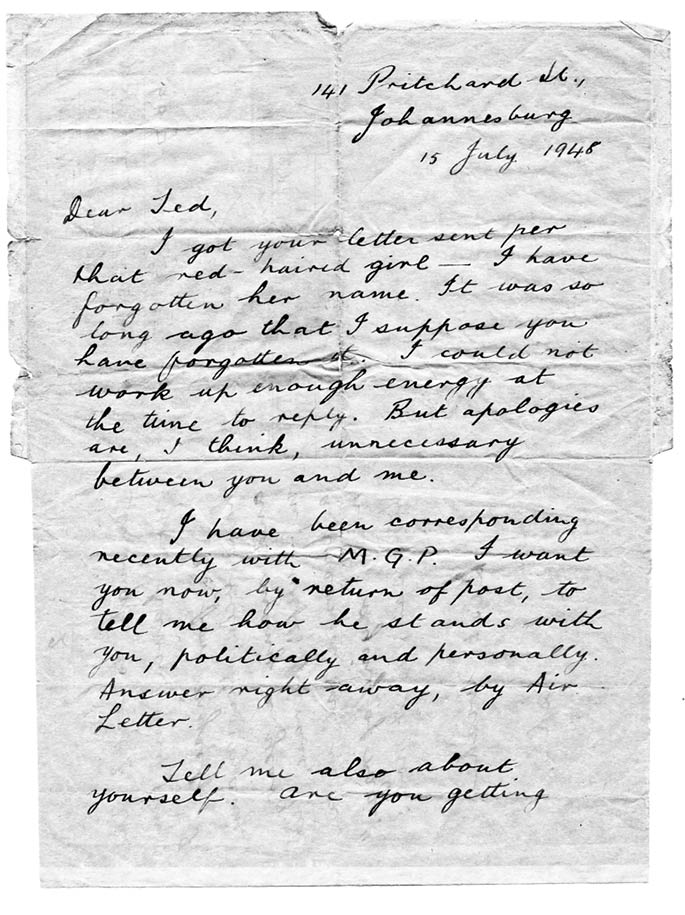 141 Pritchard St.,
Johannesburg
15 July 1948
Dear Ted,
I got your letter sent per
that red-haired girl — I have
forgotten her name. It was so
long ago that I suppose you
have forgotten it. I could not
work up enough energy at
the time to reply. But apologies
are, I think, unnecessary
between you and me.
I have been corresponding
recently with M.G.P. I want
you now, by return of post, to
tell me how he stands with
you, politically and personally.
Answer right away, by Air
Letter.
Tell me also about
yourself. Are you getting